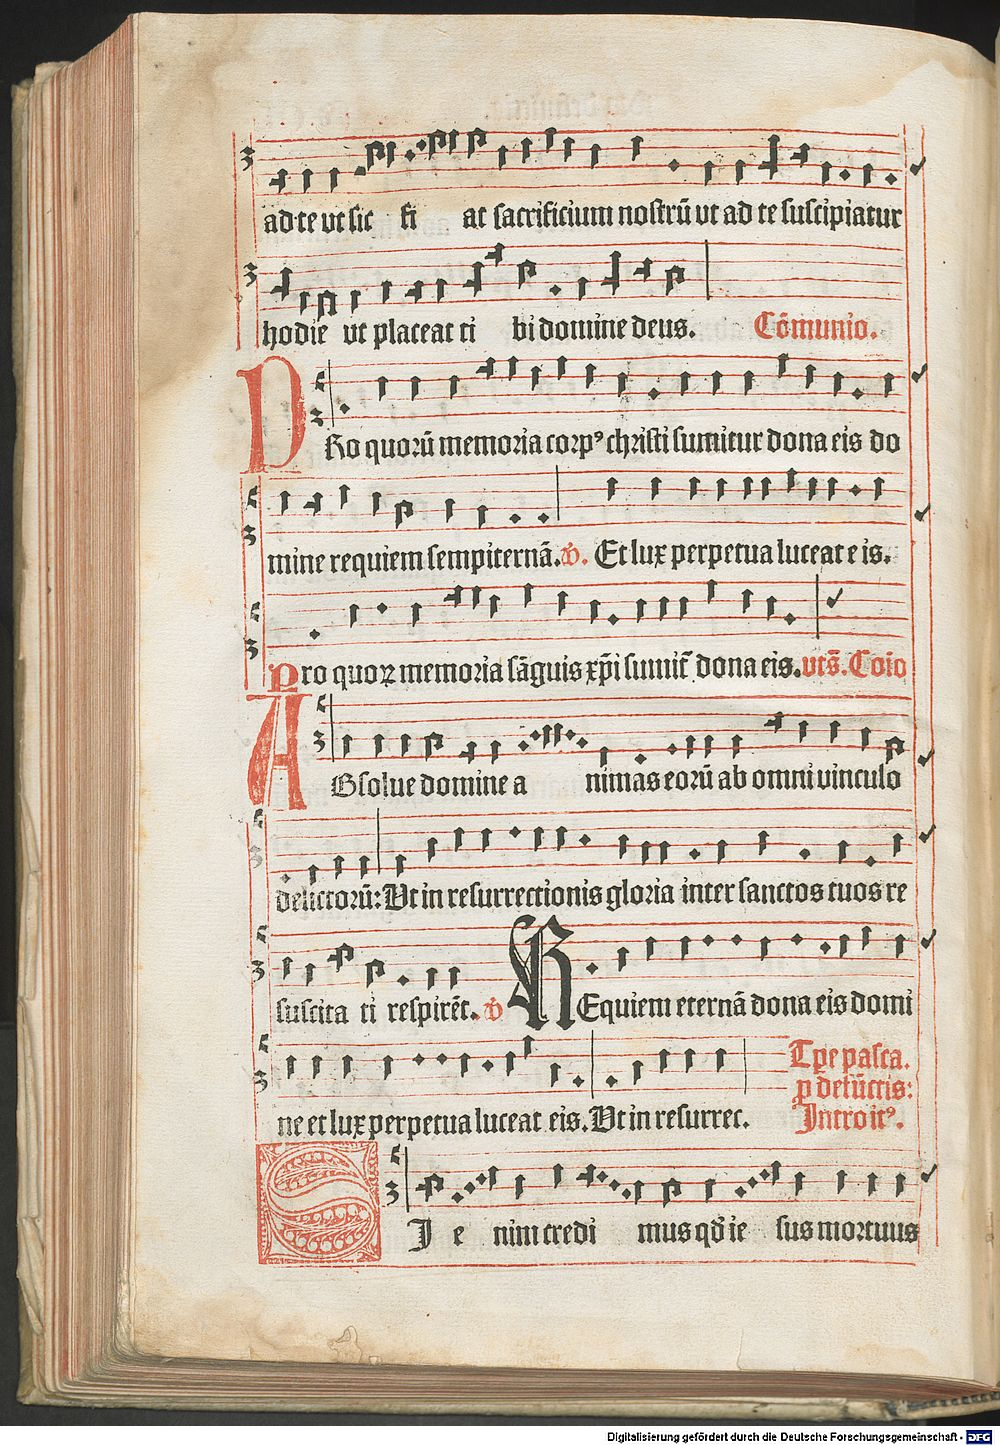 ad te vt sic fi at sacrificium nostrū vt ad te suscipiatur
hodie vt placeat ti bi domine deus. Cōmunio.
PRo quorū memoria corpꝰ christi sumitur dona eis do
mine requiem sempiternā. ꝟ. Et lux perpetua luceat e is.
Pro quoꝝ memoria sāguis xp̄i sumit᷑ dona eis. vts̄. Coīo
ABsolue domine a nimas eorū ab omni vinculo
delictorū: Vt in resurrectionis gloria inter sanctos tuos re
suscita ti respirēt. ꝟ REquiem eternā dona eis domi
ne et lux perpetua luceat eis. Vt in resurrec.
Tpe pasca.
p̄ defūctis:
Introitꝰ.
SI e nim credi mus qd̄ ie sus mortuus
Digitalisierung gefördert durch die Deutsche Forschungsgemeinschaft - DFG